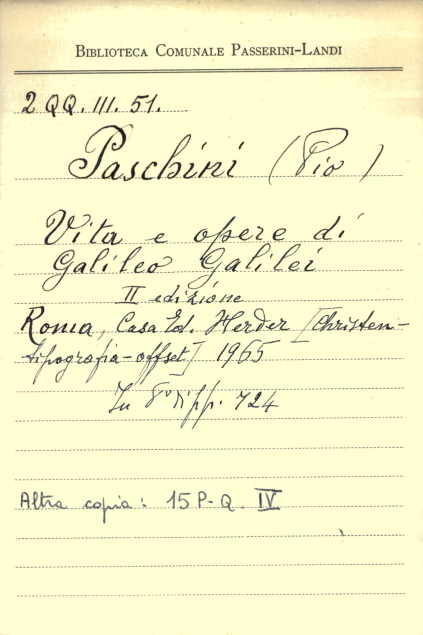 BIBLIOTECA COMUNALE PASSERINI-LANDI
2 QQ. III. 51.
Paschini (Pio)
Vita e opere di
Galileo Galilei
II edizione
Roma, Casa Ed. Herder [Christen-
tipografia-offset] 1965
In 8° di pp. 724
Altra copia: 15 P-Q. IV